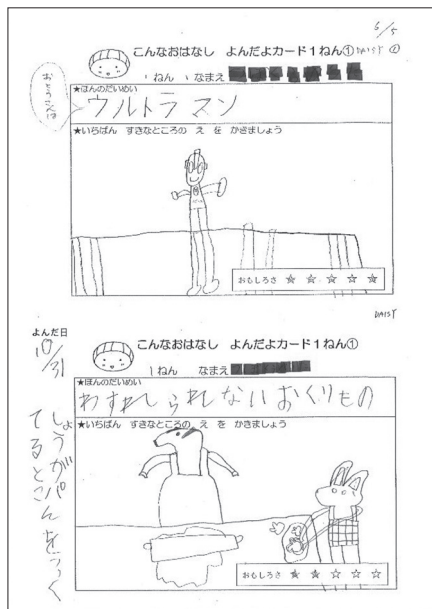 6/5
こんなおはなし よんだよカード１ねん① DAISY ②
１ねん なまえ
★ほんのだいめい
おとうさんは
ウルトラマン
★いちばん すきなところの え を かきましょう
おもしろさ ★ ★ ★ ★ ★
DAISY
よんだ日
10/31
こんなおはなし よんだよカード１ねん①
１ねん なまえ
★ほんのだいめい
わすれられないおくりもの
★いちばん すきなところの え を かきましょう
しょうがパんをつく
てるとこ
おもしろさ ★ ★ ☆ ☆ ☆